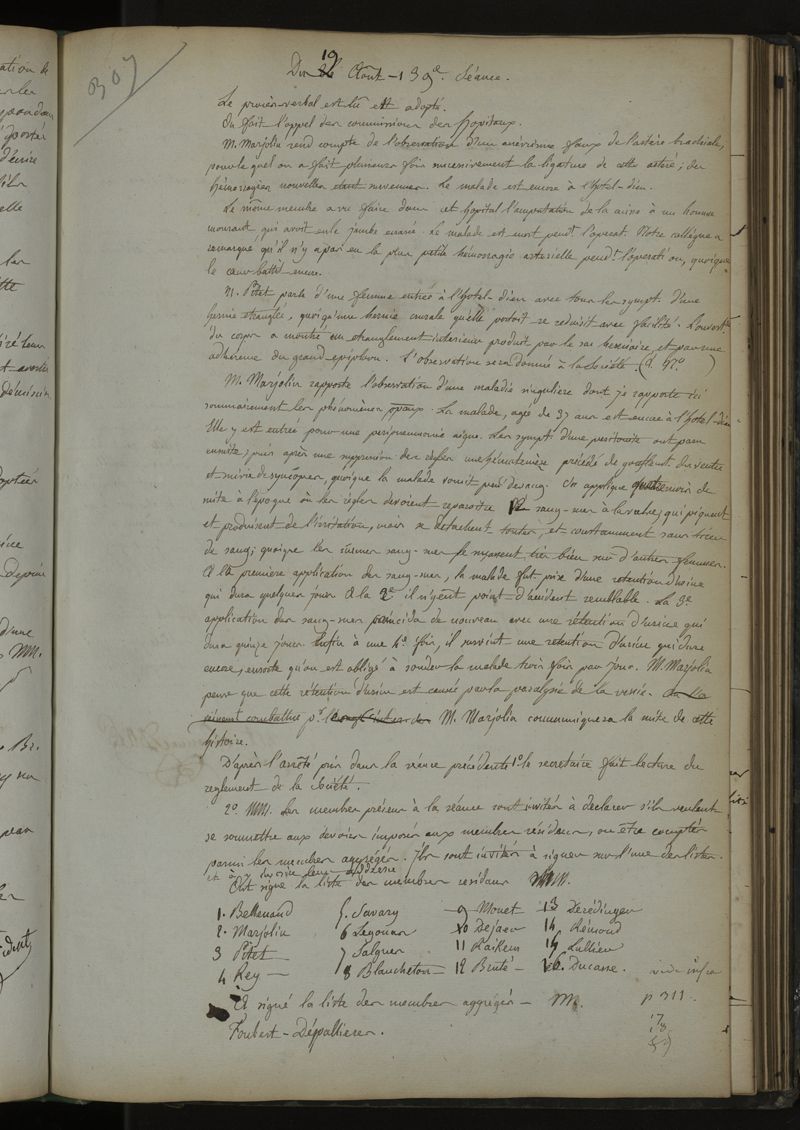 307
Du 19 Aout - 139e. Séance.
Le procès-verbal est lu et adopté.
On fait l'appel des commissions des hopitaux.
M. Marjolin rend compte de l'observation d'un anévrisme faux de l'artère brachiale,
pour le quel on a fait plusieurs fois successivement la ligature de cette artère ; des
hémorragies nouvelles sont survenues. Le malade est encore à l'hotel-dieu.
Le même membre a vu faire dans cet hopital l'amputation de la cuisse à un homme
mourant, qui avoit eu la jambe écrasée. Le malade est mort pendt. l'operat. Notre collègue a
remarqué qu'il n'y a pas eu la plus petite hémorragie arterielle pendt. l'operation, quoique
le coeur battit encore.
M. Petet parle d'une femme entrée à l'hotel-dieu avec tous les sympt. d'une
hernie etranglée, quoiqu'une hernie crurale qu'elle portoit se reduisit avec facilité. L'ouvertre
du corps a montré un etranglement interieur produit par le sac herniaire, et par une
adherence du grand epiploon. L'observation sera donnée à la société - (d. 97° )
M. Marjolin rapporte l'observation d'une maladie singuliere dont je rapporte ici
sommairement les phénomènes opaux. La malade, agée de 37 ans est encore à l'hotel-dieu
Elle y est entrée pour une peripneumonie aigue. Les sympt. d'une peritonite ont paru
ensuite ; puis après une suppression des règles une hématemèse précédée de gonflemt. du ventre
et suivie de syncopes, quoique la malade vomit peu de sang. On applique de
suite à l'époque où les règles devoient reparoitre sang-sues à la vulve, qui piquent
et produisent de l'irritation, mais se detachent toutes, et constamment sans tirer
de sang ; quoique les mêmes sang-sues se très bien sur d'autres femmes.
A la première application des sang-sues, la malade fut prise d'une retention d'urine
qui dura quelques jours. A la 2e il n'y eut point d'accident semblable. La 3e
application des sang-sues coincida de nouveau avec une rétention d'urine qui
dura quinze jours. Enfin à une 4e. fois, il survint une retention d'urine qui dure
encore, ensorte qu'on est obligé à sonder la malade trois fois par jour. M. Marjolin
pense que cette rétention d'urine est causée par la paralysie de la vessie.
M. Marjolin communiquera la suite de cette
histoire.
D'après l'arrêté pris dans la séance précédente 1° le secretaire fait lecture du
reglement de la société.
2° MM. les membres présens à la séance sont invités à declarer s'ils veulent
se soumettre aux devoirs imposés aux membres résidans, ou être comptés
parmi les membres aggrégés. Ils sont invités à signer sur l'une des listes
et à y inscrire leur addresse
Ont signé la liste des membres residans MM.
1. Bellenand 5. Savary 9 Mouet 13 Deredinger
2. Marjolin 6 Legouas 10 Dejaer 14 Rémond
3 Petet 7 Salgues 11 Raikem 15 Lullier
4 Rey - 8 Blancheton - 12 Bruté - 16. Ducasse. vide infra
p 311.
Et signé la liste des membres aggrégés - MM.
Foubert - Dépallieres.